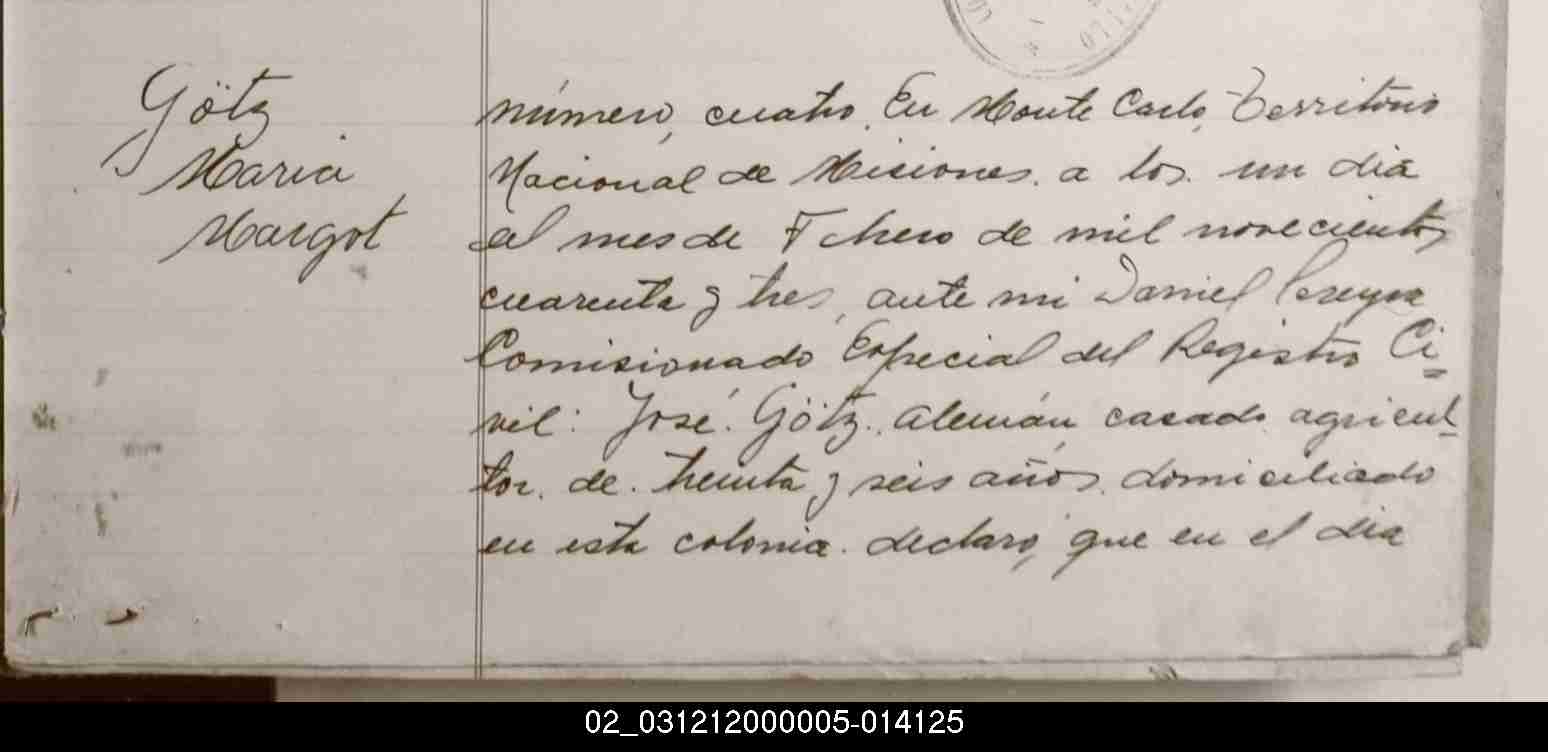 Götz
Maria
Margot
número, cuatro. En Monte Carlo, Territorio
Nacional de Misiones. a los. un dia
el mes de Febrero de mil novecientos
cuarenta y tres, ante mi Daniel Pereyra
Comisionado Especial del Registro Ci=
vil: José. Götz., alemán, casado, agricul-
tor. de. treinta y seis años. domiciliado
en esta colonia. declaro, que en el dia
02_031212000005-014125